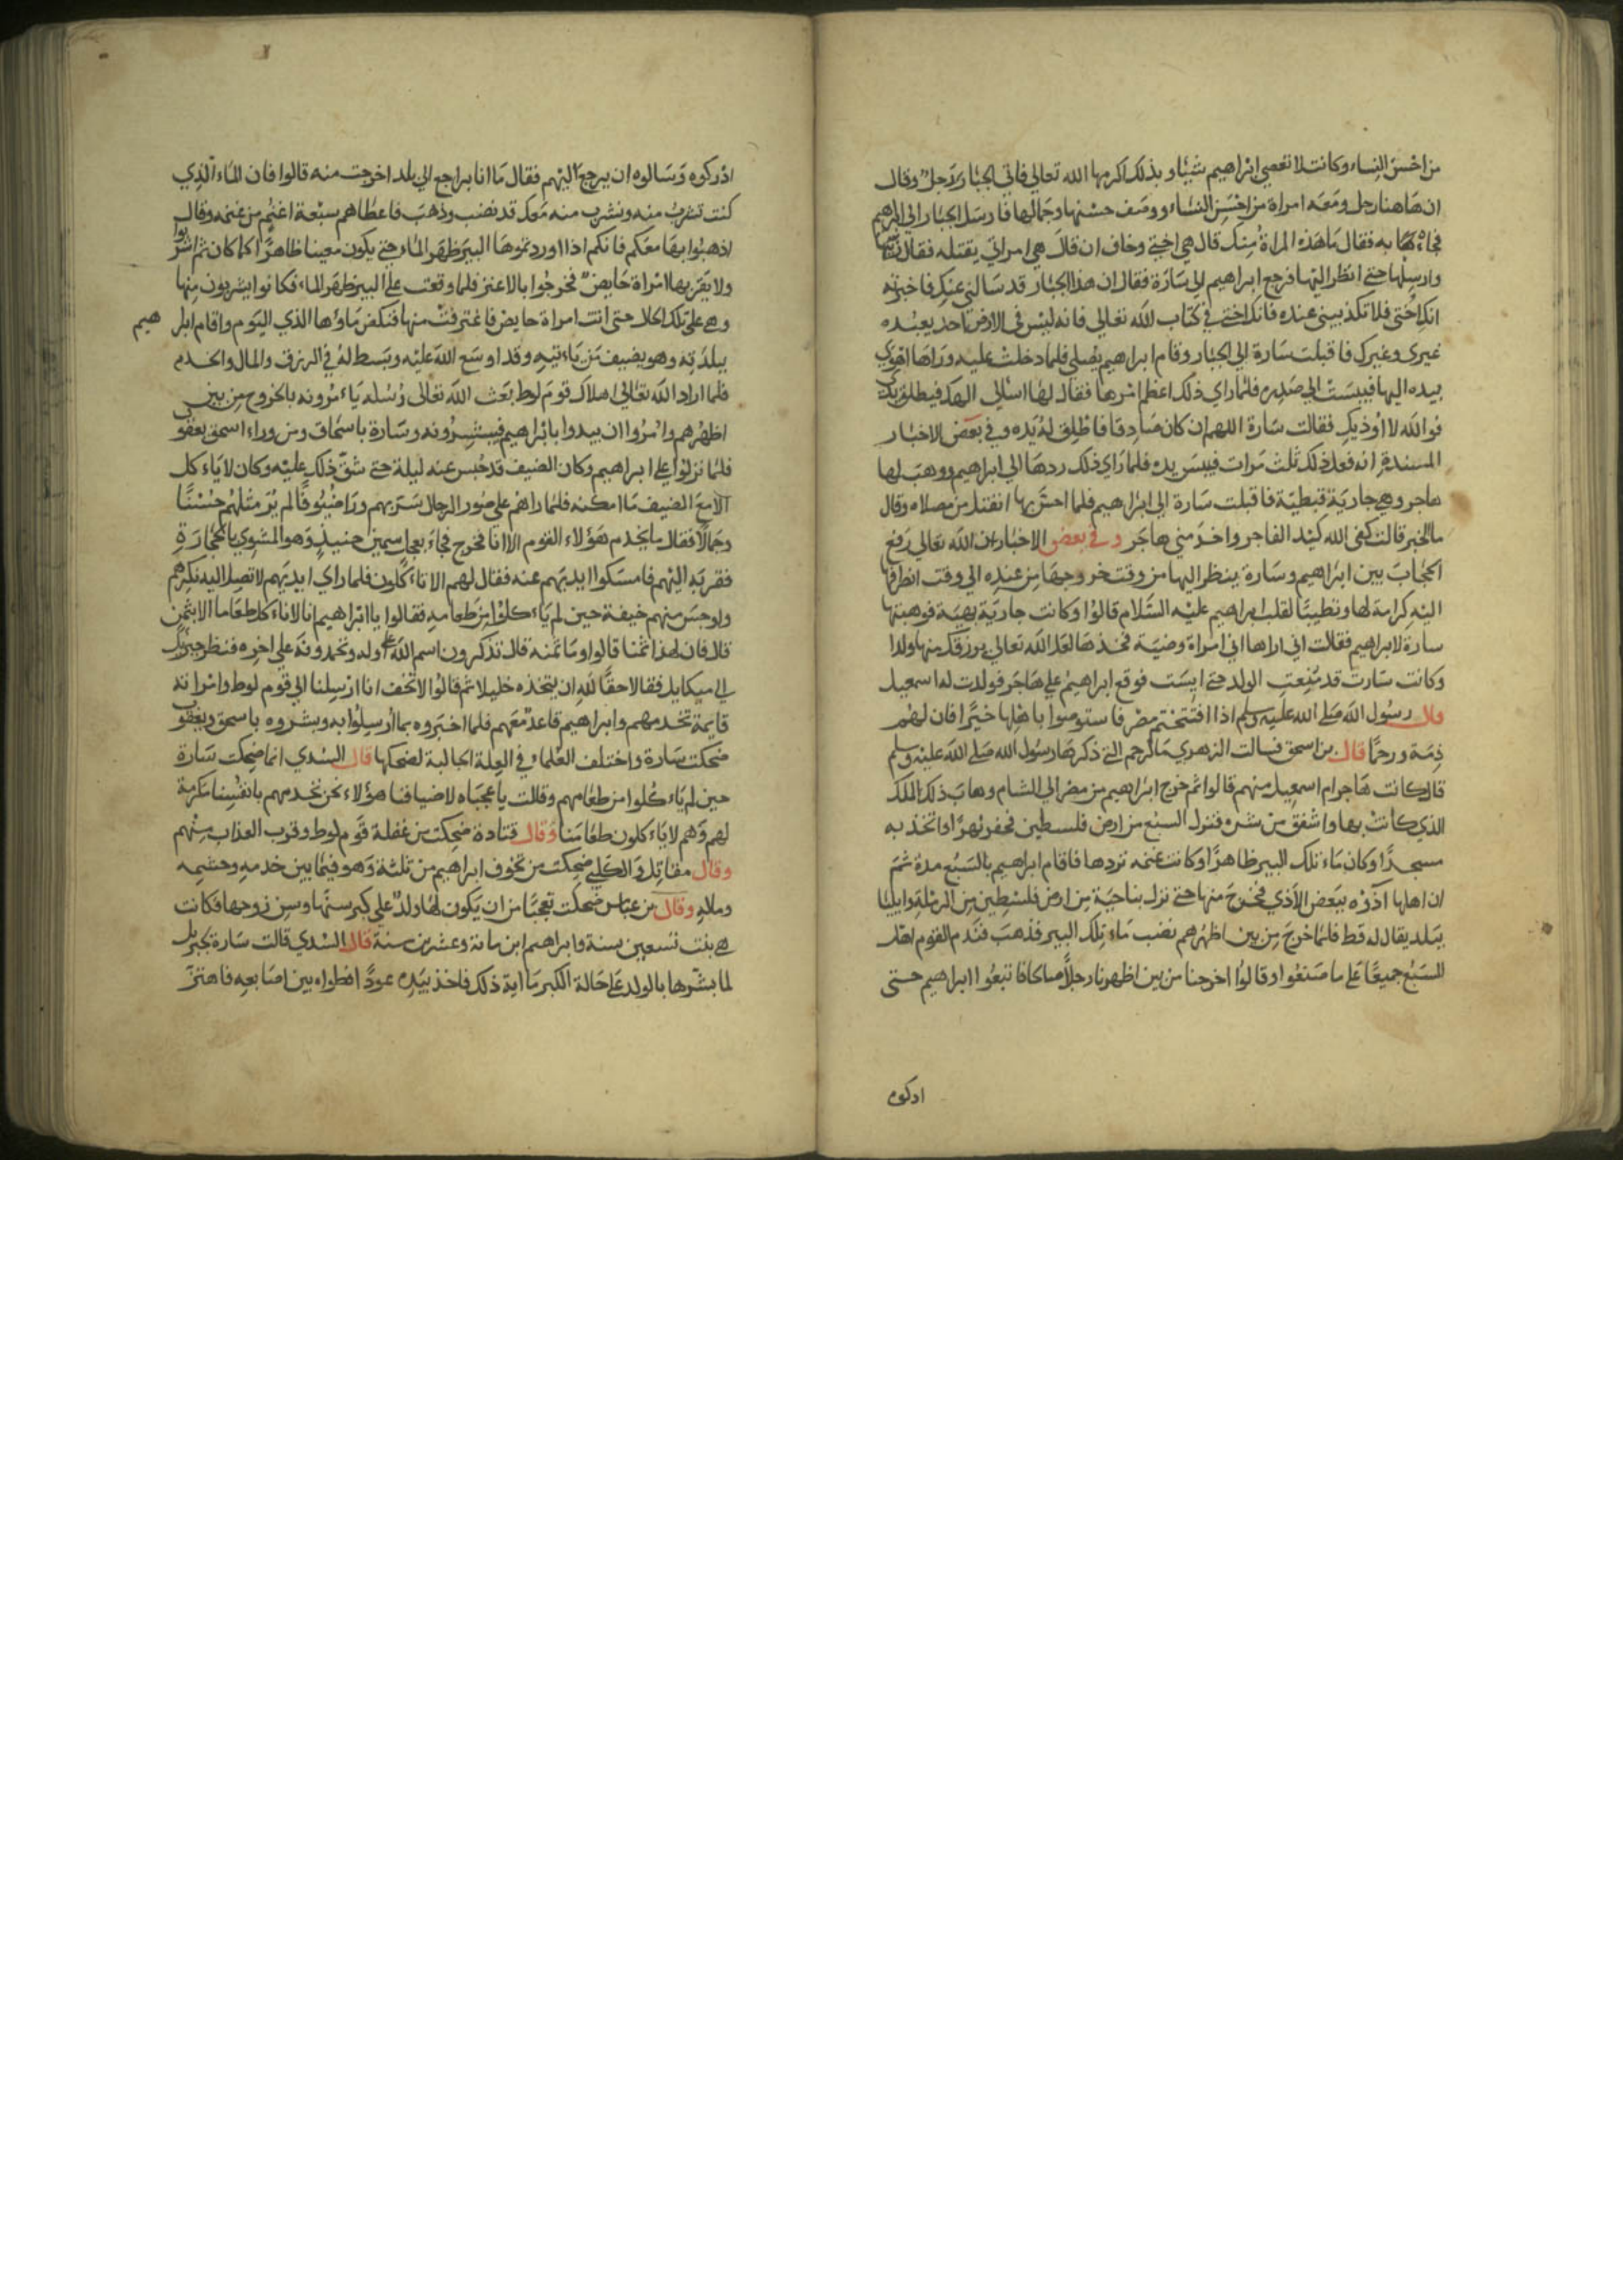 من احسن النساء وكانت لا تعصي ابراهيم شيئا وبذلك اكرمها الله تعالي فاتي الجبار رجل وقال
ان هاهنا رجل ومعه امراة من احسن النساء ووصف حسنها وجمالها فارسل الجبار الي ابرهيم
فجاء به فقال ما هذه المراة منك قال هي اختي وخاف ان قال هي امراتي يقتله فقال
وارسلها حتي انظر اليها فرجع ابراهيم الي سارة فقال ان هذا الجبار قد سالني عنك فاخبرته
انك اختي فلا تكذبيني عنده فانك اختي في كتاب الله تعالي فانه ليس في الارض احد يعبده
غيري وغيرك فاقبلت سارة الي الجبار وقام ابراهيم يصلي فلما دخلت عليه وراها اهوي
بيده اليها فيبست الي صدره فلما راي ذلك اعظم امرها فقال لها اسالي الهك فيطلق يدي
فوالله لا اوذيك فقالت سارة اللهم ان كان صادقا فاطلق له يده وفي بعض الاخبار
المسندة انه فعل ذلك ثلث مرات فيبس يده فلما راي ذلك ردها الي ابراهيم ووهب لها
هاجر وهي جارية قبطية فاقبلت سارة الي ابراهيم فلما احس بها انفتل من مصلاه وقال
ما الخبر قالت كفي الله كيد الفاجر واخذمني هاجر وفي بعض الاخبار ان الله تعالي رفع
الحجاب بين ابراهيم وسارة ينظر اليها من وقت خروجها من عنده الي وقت انصرافها
اليه كرامة لها وتطييبا لقلب ابراهيم عليه السلام قالوا وكانت جارية بهية فوهبتها
سارة لابراهيم فقالت اني اراها اني امراة وضية فخذها لعل الله تعالي يرزقك منها ولدا
وكانت سارت قد منعت الولد حتي ايست فوقع ابراهيم علي هاجر فولدت له اسمعيل
قال رسول الله صلي الله عليه وسلم اذا افتتحتم مصر فاستوصوا باهلها خيرا فان لهم
ذمة ورحما قال بن اسحق فسالت الزهري ما الرحم التي ذكرها رسول الله صلي الله عليه وسلم
قال كانت هاجر ام اسمعيل منهم قالوا ثم خرج ابراهيم من مصر الي الشام وهاب ذلك الملك
الذي كانت بها واشفق من شره فنزل السبع من ارض فلسطين فحفر نهرا واتخذ به
مسجدا وكان ماء تلك البير ظاهرا وكانت غنمه تردها فاقام ابراهيم بالسبع مدة ثم
ان اهلها آذوه ببعض الاذي فخرج منها حتي نزل بناحية من ارض فلسطين بين الرملة وايليا
ببلد يقال له قط فلما خرج من بين اظهرهم نضب ماء تلك البير فذهب فندم القوم اهل
السبع جميعا علي ما صنعوا وقالوا اخرجنا من بين اظهرنا رجلا صالحا فاتبعوا ابراهيم حتى
ادركوه
ادركوه وسالوه ان يرجع اليهم فقال ما انا براجع الي بلد اخرجت منه قالوا فان الماء الذي
كنت تشرب منه ونشرب منه معك قد نضب وذهب فاعطاهم سبعة اغنم من غنمه وقال
اذهبوا بها معكم فانكم اذا اوردتموها البير ظهر الماء حتي يكون معينا ظاهرا كما كان ثم اشربوا
ولا يقربها امراة حايض فخرجوا بالاعنز فلما وقعت علي البير ظهر الماء فكانوا يشربون منها
وهي على تلك الحال حتى اتت امراة حايض فاغترفت منها فنكص ماوها الذي اليوم واقام ابراهيم
ببلدته وهو يضيف من ياءتيه وقد اوسع الله عليه وبسط له في الرزق والمال والخدم
فلما اراد الله تعالي اهلاك قوم لوط بعث الله تعالى رسله ياءمرونه بالخروج من بين
اظهرهم وامروا ان يبدوا بابراهيم فيبشرونه وسارة باسحاق ومن وراء اسحق يعقوب
فلما نزلوا علي ابراهيم وكان الضيف قد حبس عنه ليلة حتي شق ذلك عليه وكان لا ياءكل
الا مع الضيف ما امكنه فلما راهم علي صور الرجال سر بهم وراء ضيوفا لم ير مثلهم حسنا
وجمالا فقال ما يخدم هؤلاء القوم الا انا فخرج فجاء بعجل سمين حنيذ وهو المشوي بالحجارة
فقربه اليهم فامسكوا ايديهم عنه فقال لهم الا تاءكلون فلما راي ايديهم لا تصل اليه نكرهم
واوجس منهم خيفة حين لم ياءكلوا من طعامه فقالوا يا ابراهيم انا لا ناءكل طعاما الا بثمن
قال فان لهذا ثمنا قالوا وما ثمنه قال تذكرون اسم الله علي اوله وتحمدونه علي اخره فنظر جبريل
الي ميكايل فقالا حقا لله ان يتخذه خليلا ثم قالوا لا تخف انا ارسلنا الي قوم لوط وامراته
قايمة تخدمهم وابراهيم قاعد معهم فلما اخبروه بما ارسلوا به وبشروه باسحق ويعقوب
ضحكت سارة واختلف العلما في العلة الجالبة لضحكها قال السدي انما ضحكت سارة
حين لم ياءكلوا من طعامهم وقالت يا عجباه لاضيافنا هؤلاء نحن نخدمهم بانفسنا مكرمة
لهم وهم لا ياءكلون طعامنا وقال قتادة ضحكت من غفلة قوم لوط وقرب العذاب منهم
وقال مقاتل والكلبي ضحكت من تخوف ابراهيم من ثلثة وهو فيما بين خدمه وحشمه
وقال بن عباس ضحكت تعجبا من ان يكون لها ولد علي كبر سنها وسن زوجها فكانت
هي بنت تسعين سنة وابراهيم ابن مائة وعشرين سنة قال السدي قالت سارة لجبريل
لما بشرها بالولد علي حالة الكبر ما اية ذلك فاخذ بيده عودا فطواه بين اصابعه فاهتز